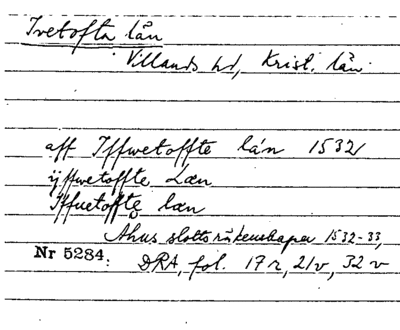 Ivetofta län
Villands hd, Krist. län.
aff Iffwetoffte län 1532
ijffwetoffte Læn
Iffuetoffte læn
Åhus slotts räkenskaper 1532-33,
Nr 5284. DRA, fol. 17 r, 21 v, 32 v